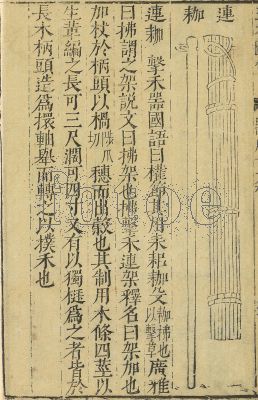 連耞
連耞 擊禾器國語曰權節其用耒耜耞芟耞拂也以擊草廣雅
曰拂謂之架說文曰拂架也拂擊禾連架釋名曰架加也
加杖於柄頭以撾陟瓜切穗而出穀也其制用木條四莖以
生革編之長可三尺闊可四寸又有以獨梃爲之者皆於
長木柄頭造爲擐軸舉而轉之以撲禾也